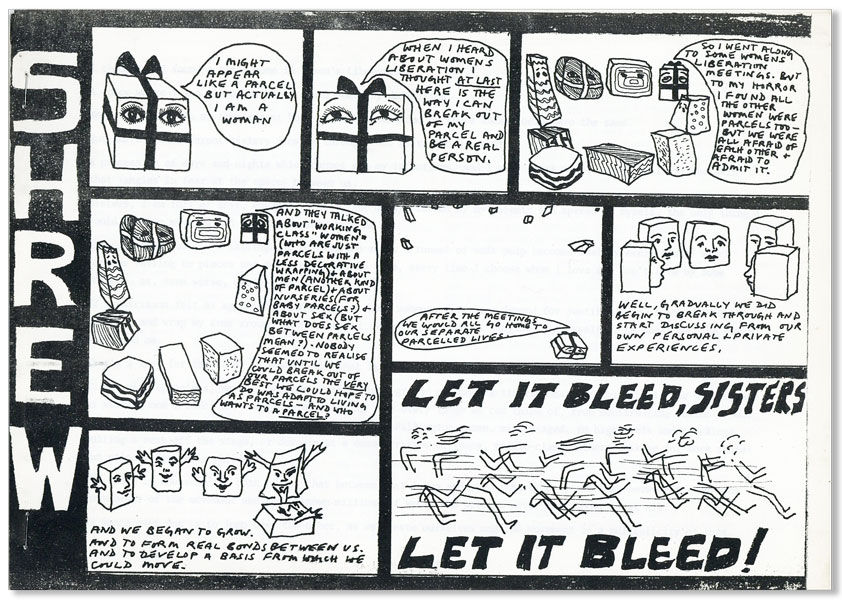 SHREW
I MIGHT
APPEAR
LIKE A PARCEL
BUT ACTUALLY
I AM A
WOMAN
WHEN I HEARD
ABOUT WOMENS
LIBERATION I
THOUGHT AT LAST
HERE IS THE
WAY I CAN
BREAK OUT
OF MY
PARCEL AND
BE A REAL
PERSON.
SO I WENT ALONG
TO SOME WOMENS
LIBERATION
MEETINGS. BUT
TO MY HORROR
I FOUND ALL
THE OTHER
WOMEN WERE
PARCELS TOO -
BUT WE WERE
ALL AFRAID OF
EACH OTHER +
AFRAID TO
ADMIT IT.
AND THEY TALKED
ABOUT "WORKING
CLASS" WOMEN"
(WHO ARE JUST
PARCELS WITH A
LESS DECORATIVE
WRAPPING) + ABOUT
MEN (ANOTHER KIND
OF PARCEL) + ABOUT
NURSERIES (FOR
BABY PARCELS?) +
ABOUT SEX (BUT
WHAT DOES SEX
BETWEEN PARCELS
MEAN?). NOBODY
SEEMED TO REALISE
THAT UNTIL WE
COULD BREAK OUT OF
OUR PARCELS THE VERY
BEST WE COULD HOPE TO
DO WAS ADAPT TO LIVING
AS PARCELS - AND WHO
WANTS TO A PARCEL?
AFTER THE MEETINGS
WE WOULD ALL GO HOME TO
OUR SEPARATE
PARCELLED LIVES.
WELL, GRADUALLY WE DID
BEGIN TO BREAK THROUGH AND
START DISCUSSING FROM OUR
OWN PERSONAL & PRIVATE
EXPERIENCES.
AND WE BEGAN TO GROW.
AND TO FORM REAL BONDS BETWEEN US.
AND TO DEVELOP A BASIS FROM WHICH WE
COULD MOVE.
LET IT BLEED, SISTERS
LET IT BLEED!